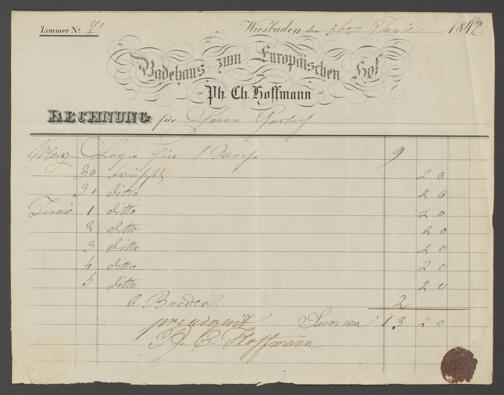 Zimmer Nº 70 Wiesbaden, den 5ten Juni 184
Badehaus zum Europäischen Hof
von
Ph. Ch. Hoffmann
RECHNUNG für Herrn
Logis für 1 Woche 9
30 20
31 ditto 20
Juni 1 ditto 20
2 ditto 20
3 ditto 20
4 ditto 20
5 ditto 20
6 Baeder 2
Summa 13 20
Ph. C. Hoffmann